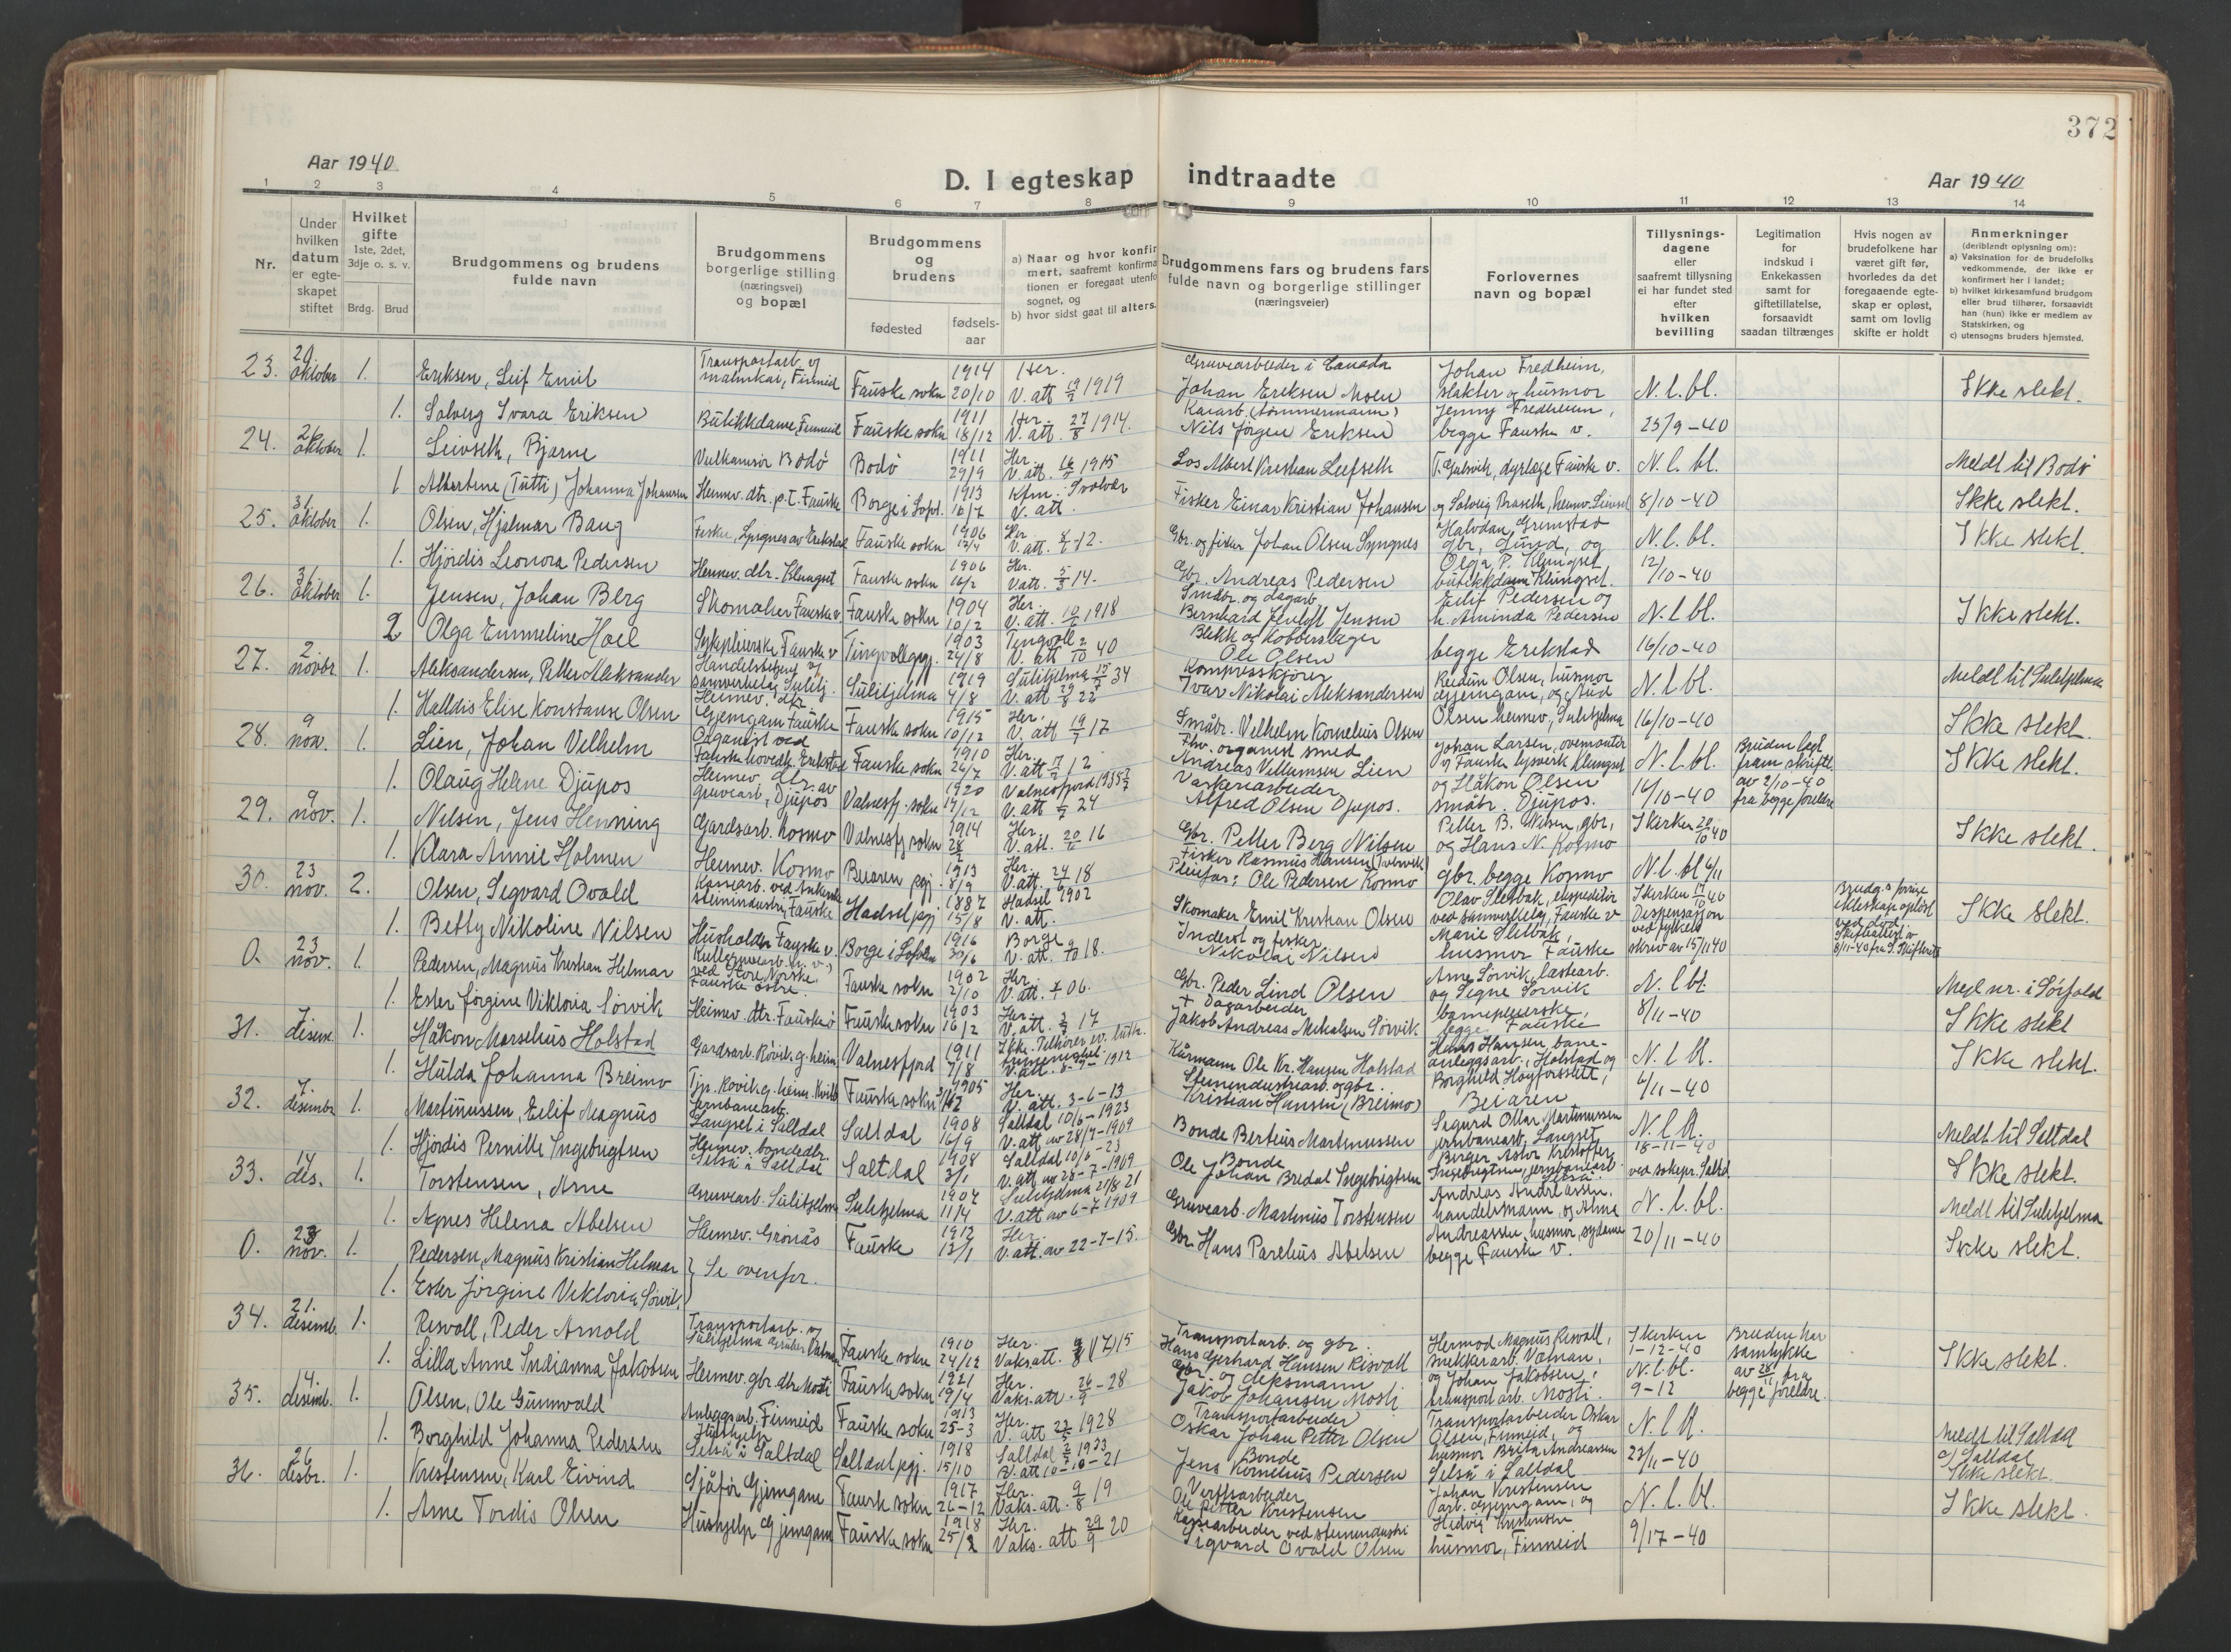 372
Aar 1940
D. I egteskap indtraadte
Aar 1940
1 2 3 4 5 6 7 8 9 10 11 12 13 14
Nr.
Under hvilken datum er egteskapet stiftet
Hvilket gifte
1ste, 2det, 3dje o. s. v.
Brdg. Brud
Brudgommens og brudens fulde navn
Brudgommens borgerlige stilling (næringsvei) og bopæl
Brudgommens og brudens
fødested
fødsels-aar
a) Naar og hvor konfirmert, saafremt konfirmationen er foregaat utenfor sognet, og
b) hvor sidst gaat til alters.
Brudgommens fars og brudens fars fulde navn og borgerlige stillinger (næringsveier)
Forlovernes navn og bopæl
Tillysnings-dagene eller saafremt tillysning ei har fundet sted efter hvilken bevilling
Legitimation for indskud i Enkekassen samt for giftetillatelse, forsaavidt saadan tiltrænges
Hvis nogen av brudefolkene har været gift før, hvorledes da det foregaaende egteskap er opløst, samt om lovlig skifte er holdt
Anmerkninger
(deriblandt oplysning om):
a) Vaksination for de brudefolks vedkommende, der ikke er konfirmert her i landet;
b) hvilket kirkesamfund brudgom eller brud tilhører, forsaavidt han (hun) ikke er medlem av Statskirken, og
c) utensogns bruders hjemsted.
23. oktober 1. Eriksen, Leif Emil Transportarb. Finneid Fauske sokn 1914 20/10 Her. V. att 1919 Gruvearbeider i Canada Johan Eriksen Moen Johan Fredheim, slakter og husmor N. l. bl. Ikke slekt.
1. Solveig Svara Eriksen Butikkdame, Finneid Fauske sokn 1911 18/12 Her. V. att. 27/8 1914. Nils Jörgen Eriksen Jenny Fredheim, begge Fauske v. 25/9-40
24. oktober 1. Leivseth, Bjarne Bodö Bodö 1911 29/9 Her. V. att. 1915 Los Albert Kristian Leifseth dyrlege Fauske v. N. l. bl. Meldt til Bodö
1 Albertine (Tutti) Johanna Johansen Heimev. dtr. p.t. Fauske Borge i Lof. 1913 16/7 Kfm. Svolvær V. att. Fisker Einar Kristian Johansen 8/10-40 Ikke slekt.
25. 31 oktober 1. Olsen, Hjalmar Baug Fauske sokn 1906 Her V. att. -12. Gbr. og fisker Johan Olsen Lyngnes Halvdan Grimstad gbr, Lund, og N. l. bl. Ikke slekt.
1. Hjördis Leonora Pedersen Heimev. dtr. Klungset Fauske sokn 1906 16/2 Her. V. att. 14. Gbr. Andreas Pedersen Olga P. Klungset butikkdame Klungset. 12/10-40
26. 31 oktober 1. Jensen, Johan Berg Skomaker Fauske v Fauske sokn 1904 10/2 Her. V. att. 1918 Småbr. og dagarb. Bernhard Jensen Eilif Pedersen og h. Aminda Pedersen N. l. bl. Ikke slekt.
2 Olga Emmeline Hoel Sykepleierske Fauske v Tingvoll pgj. 1903 24/8 Tingvoll V. att 40 Blekk og Kobberslager Ole Olsen begge Erikstad 16/10-40
27. 2. novbr 1. Aleksandersen, Petter Aleksander Sulitjelma 1919 4/8 Sulitjelma 34 V. att Ivar Nikolai Aleksandersen Reidun Olsen, husmor Gjemgam, og N. l. bl. Meldt til Sulitjelma
1. Halldis Elise Konstanse Olsen Heimev. dtr. Gjemgam Fauske Fauske sokn 1915 10/12 Her. V. att 17 Småbr. Vilhelm Kornelius Olsen Olsen heimev, Sulitjelma 16/10-40 Ikke slekt.
28. 9 nov. 1. Lien, Johan Vilhelm Organist ved Fauske hovedk. Erikstad Fauske sokn 1910 26/7 Her. V. att 12 Fhv. organist smed Andreas Villumsen Lien Johan Larsen, overmontör v/ Fauske lysverk Klungset N. l. bl. Bruden legt fram skriftl. Ikke slekt.
1. Olaug Helene Djupos Heimev. dtr. av gruvearb, Djupos Valnesfj. sokn 1920 14/12 Valnesfjord 1935 V. att 24 Alfred Olsen Djupos. og Håkon Olsen småbr. Djupos. 16/10-40 av 2/10-40 fra begge foreldre
29. 9 nov. 1. Nilsen, Jens Henning Gardsarb. Kosmo Valnesfj sokn 1914 Her. V. att. 16 Gbr. Petter Berg Nilsen Petter B. Nilsen, gbr, og Hans N. Kosmo I kirken 20/10 40 Ikke slekt.
1. Klara Annie Holmen Heimev. Kosmo Beiaren pgj 1913 8/9 Her. V. att. 18 Fisker Rasmus Hansen Pleiefar: Ole Pedersen Kosmo gbr. begge Kosmo N. l. bl 4/11
30. 23 nov. 2. Olsen, Segvard Ovald steinindustri, Fauske Hadsel pgj 1887 15/8 Hadsel 1902 V. att. Skomaker Emil Kristian Olsen Olav Sletbak, ekspeditör ved samvirkelag, Fauske v I kirken Dispensasjon ved fylkets Brudg.s forrige ekteskap oplöst ved död. Ikke slekt.
1. Betty Nikoline Nilsen Husholder Fauske v. Borge i Lofoten 1916 30/6 Borge V. att. 18. Inderst og fisker Nikolai Nilsen Marie Sletbak, husmor Fauske skriv av 15/11 40
0. 23 nov. 1. Pedersen, Magnus Kristian Helmar ved Store Norske, Fauske östre Fauske sokn 1902 2/10 Her. V. att. 06. Gbr. Peder Lind Olsen Arne Sörvik, lastearb. og Signe Sörvik N. l bl. Megl nr. i Sörfold
1. Ester Jörgine Viktoria Sörvik Heimev. dtr. Fauske ö Fauske sokn 1903 16/2 Her. V. att. 17 + Dagarbeider Jakob Andreas Mikalsen Sörvik barnepleierske, begge Fauske 8/11-40 Ikke slekt
31. 7 desem. 1. Håkon Marselius Holstad Gardsarb. Rövik g. heim Valnesfjord 1911 7/8 Ikke. Tilhörer ev. luth. V. att. 8-9-1912 Kårmann Ole Kr. Hansen Holstad Hans Hansen, bane-anleggsarb., Holstad og N. l bl. Ikke slekt.
1. Hulda Johanna Breimo Tjp. Rövik g. heim Fauske sokn 1905 Her. V. att. 3-6-13 Steinindustriarb. og gbr. Kristian Hansen (Breimo) Borghild Högforsslett, Beiaren 6/11-40
32. 7 desembr 1. Martinussen, Eilif Magnus Jernbanearb. Langset i Saltdal Saltdal 1908 16/9 Saltdal 10/6-1923 V. att av 28/7-1909 Bonde Bertius Martinussen Sigurd Ottar Martinussen jernbanearb, Langset N. l bl. Meldt til Saltdal
1. Hjördis Pernille Ingebrigtsen Heimev. bondedtr. Selså i Saltdal Saltdal 1908 3/1 Saltdal 10/6-23 V. att av 28-7-1909 Bonde Ole Johan Bredal Ingebrigtsen Birger Astor Kristoffer Ingebrigtsen, jernbanearb. Selså 18-11-40 ved sokepr. Saltd. Ikke slekt.
33. 14 des. 1. Torstensen, Arne Gruvearb. Sulitjelma Sulitjelma 1907 11/4 Sulitjelma 21/8 21 V. att av 6-7 1909 Gruvearb. Martinus Torstensen Andreas Andreassen, handelsmann, og Alma N. l. bl. Meldt til Sulitjelma
1. Agnes Helena Abelsen Heimev. Grönås Fauske 1912 13/1 Her. V. att. av 22-7-15. Gbr. Hans Parelius Abelsen Andreassen, husmor, sydame begge Fauske v. 20/11-40 Ikke slekt.
0. 23 nov. 1. Pedersen, Magnus Kristian Helmar } Se ovenfor.
1. Ester Jörgine Viktoria Sörvik.
34. 21. desemb. 1. Risvoll, Peder Arnold Transportarb. v/ Sulitjelma Gruber Fauske sokn 1910 24/12 Her. Vaks.att. 15 Transportarb. og gbr. Hans Gerhard Hansen Risvoll Hermod Magnus Risvoll, snekkerarb. I kirken 1-12-40 Bruden har samtykke Ikke slekt.
1. Lilla Anne Indianna Jakobsen Heimev. gbr. dtr Mosti Fauske sokn 1921 19/4 Her. Vaks. att. 26/9-28 Gbr. og deksmann Jakob Johansen Mosti og Johan Jakobsen, transport arb. Mosti. N. l. bl. 9-12 av 28/11 fra begge foreldre.
35. 14. desemb. 1. Olsen, Ole Gunnvald Anleggsarb. Finneid Fauske sokn 1913 25-3 Her. V. att 1928 Transportarbeider Oskar Johan Petter Olsen Transportarbeider Oskar Olsen, Finneid, og N. l bl. Meldt til Saltdal
1. Borghild Johanna Pedersen Hushjelp Selså i Saltdal Saltdal pgj. 1918 15/10 Saltdal 1933 V. att 10-10-21 Bonde Jens Kornelius Pedersen husmor Brita Andreassen Selså i Saltdal 23/11-40 c) Saltdal Ikke slekt.
36. 26 desbr. 1. Kristensen, Karl Eivind Sjåför Gjemgam Fauske sokn 1917 26-12 Her. Vaks. att. 9/8 19 Verftsarbeider Ole Petter Kristensen Johan Kristensen arb. Gjemgam, og N. l. bl. Ikke slekt.
1. Arne Tordis Olsen Hushjelp Gjemgam Fauske sokn 1918 25/2 Her. Vaks. att 29/9 20 Kassearbeider ved steinindustri Sigvard Ovald Olsen Hedvig Kristensen husmor, Finneid 9/17-40